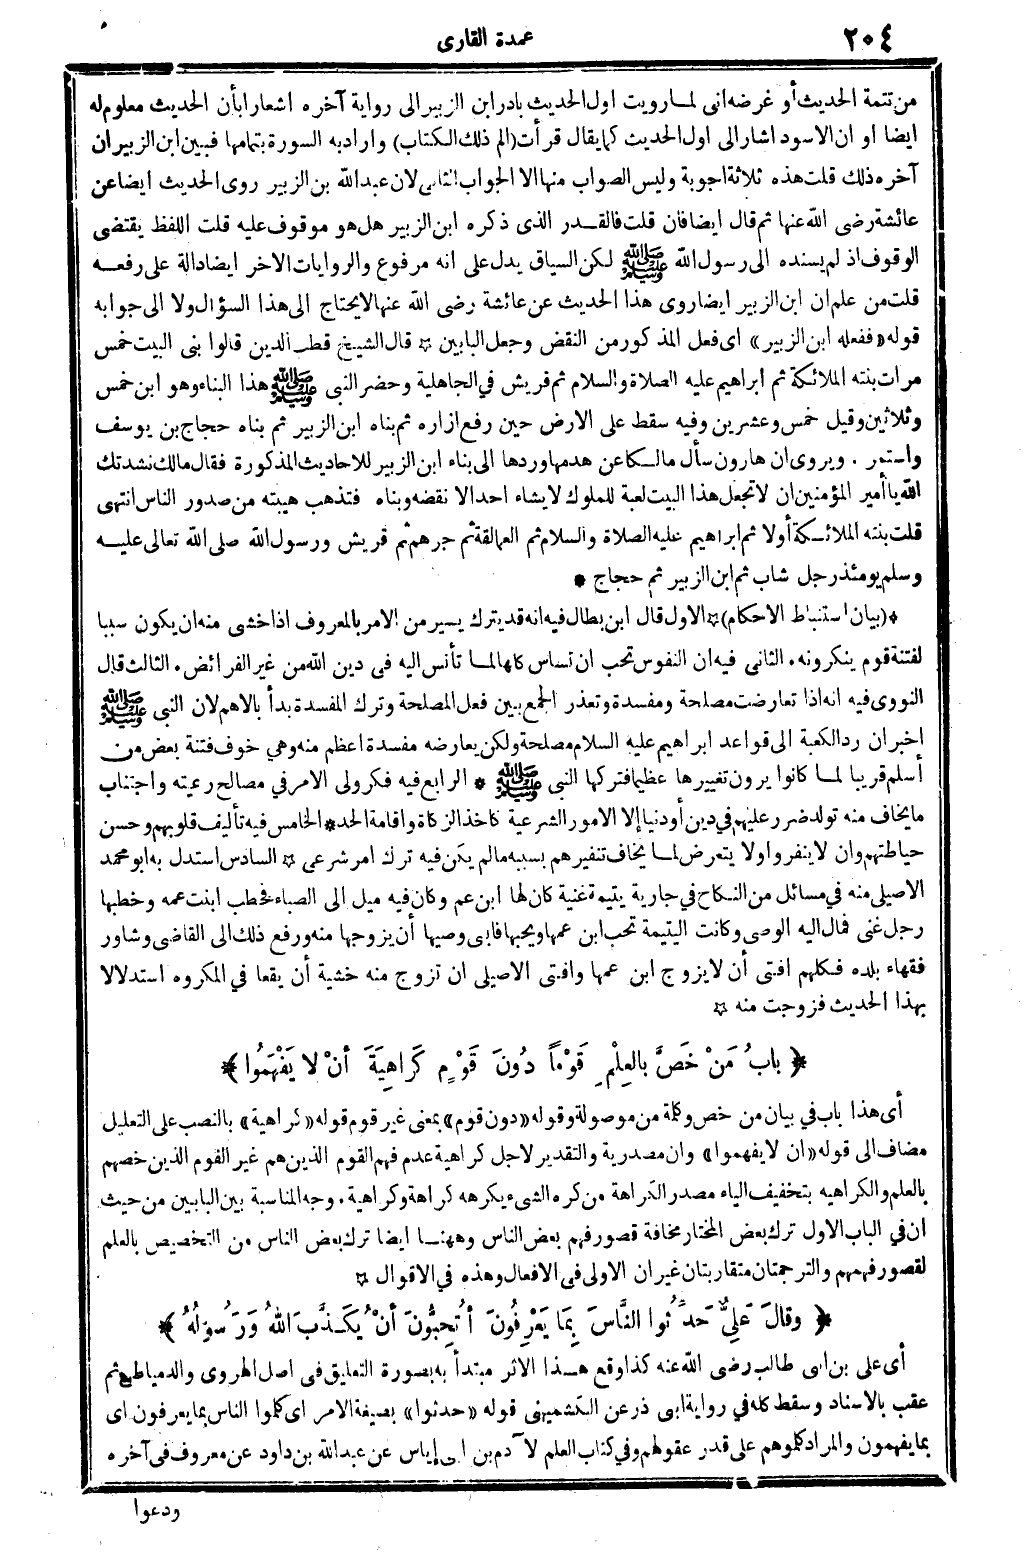 ٢٠٤
عمدة القارى
من تتمة الحديث أو غرضه انى لما رويت اول الحديث بادر ابن الزبير الى رواية آخره اشعارا بأن الحديث معلوم له
ايضا او ان الاسود اشار الى اول الحديث كما يقال قرأت (الم ذلك الكتاب) واراد به السورة بتمامها فبين ابن الزبير ان
آخره ذلك قلت هذه ثلاثة اجوبة وليس الصواب منها الا الجواب الثانى لان عبدالله بن الزبير روى الحديث ايضا عن
عائشة رضى الله عنها ثم قال ايضا فان قلت فالقدر الذى ذكره ابن الزبير هل هو موقوف عليه قلت اللفظ يقتضى
الوقوف اذ لم يسنده الى رسول الله ﷺ لكن السياق يدل على انه مرفوع والروايات الاخر ايضا دالة على رفعه
قلت من علم ان ابن الزبير ايضا روى هذا الحديث عن عائشة رضى الله عنها لا يحتاج الى هذا السؤال ولا الى جوابه
قوله «ففعله ابن الزبير» اى فعل المذكور من النقض وجعل البابين ☆ قال الشيخ قطب الدين قالوا بنى البيت خمس
مرات بنته الملائكة ثم ابراهيم عليه الصلاة والسلام ثم قريش في الجاهلية وحضر النبى ﷺ هذا البناء وهو ابن خمس
وثلاثين وقيل خمس وعشرين وفيه سقط على الارض حين رفع ازاره ثم بناه ابن الزبير ثم بناه حجاج بن يوسف
واستمر . ويروى ان هارون سأل مالكا عن هدمها وردها الى بناء ابن الزبير للاحاديث المذكورة فقال مالك نشدتك
الله يا أمير المؤمنين ان لا تجعل هذا البيت لعبة للملوك لا يشاء احد الا نقضه وبناه فتذهب هيبته من صدور الناس انتهى
قلت بنته الملائكة أولا ثم ابراهيم عليه الصلاة والسلام ثم العمالقة ثم جرهم ثم قريش ورسول الله صلى الله تعالى عليه
وسلم يومئذ رجل شاب ثم ابن الزبير ثم حجاج *
*(بيان استنباط الاحكام) ☆ الاول قال ابن بطال فيه انه قد يترك يسير من الامر بالمعروف اذا خشى منه ان يكون سببا
لفتنة قوم ينكرونه. الثانى فيه ان النفوس تحب ان تساس كلها لما تأنس اليه فى دين الله من غير الفرائض. الثالث قال
النووى فيه انه اذا تعارضت مصلحة ومفسدة وتعذر الجمع بين فعل المصلحة وترك المفسدة بدأ بالاهم لان النبى ﷺ
اخبر ان رد الكعبة الى قواعد ابراهيم عليه السلام مصلحة ولكن يعارضه مفسدة اعظم منه وهي خوف فتنة بعض من
أسلم قريبا لما كانوا يرون تغييرها عظيما فتركها النبى ﷺ * الرابع فيه فكر ولى الامر في مصالح رعيته واجتناب
ما يخاف منه تولد ضرر عليهم في دين أو دنيا إلا الامور الشرعية كأخذ الزكاة واقامة الحد* الخامس فيه تأليف قلوبهم وحسن
حياطتهم وان لا ينفروا ولا يتعرض لما يخاف تنفيرهم بسببه مالم يكن فيه ترك امر شرعى ☆ السادس استدل به ابو محمد
الاصيلى منه في مسائل من النكاح في جارية يتيمة غنية كان لها ابن عم وكان فيه ميل الى الصباء فخطب ابنت عمه وخطبها
رجل غنى فمال اليه الوصى وكانت اليتيمة تحب ابن عمها ويحبها فابى وصيها أن يزوجها منه ورفع ذلك الى القاضى وشاور
فقهاء بلده فكلهم افتى أن لا يزوج ابن عمها وافتى الاصيلى ان تزوج منه خشية أن يقعا في المكروه استدلالا
بهذا الحديث فزوجت منه ☆
﴿ بابُ مَنْ خَصَّ بالعِلْمِ قَوْماً دُونَ قَوْمٍ كَرَاهِيَةَ أنْ لا يَفْهَمُوا ﴾
أى هذا باب في بيان من خص وكلمة من موصولة وقوله «دون قوم» بمعنى غير قوم قوله «كراهية» بالنصب على التعليل
مضاف الى قوله «ان لا يفهموا» وان مصدرية والتقدير لاجل كراهية عدم فهم القوم الذين هم غير القوم الذين خصهم
بالعلم والكراهيه بتخفيف الياء مصدر الكراهة من كره الشىء يكرهه كراهة وكراهية. وجه المناسبة بين البابين من حيث
ان في الباب الاول ترك بعض المختار مخافة قصور فهم بعض الناس وههنا ايضا ترك بعض الناس من التخصيص بالعلم
لقصور فهمهم والترجمتان متقاربتان غير ان الاولى فى الافعال وهذه في الاقوال ☆
﴿ وقالَ عَلِيٌّ حَدِّثُوا النَّاسَ بِمَا يَعْرِفُونَ أتُحِبُّونَ أنْ يُكَذَّبَ اللهُ وَرَسُولُهُ ﴾
أى على بن ابى طالب رضى الله عنه كذا وقع هذا الاثر مبتدأ به بصورة التعليق فى اصل الهروى والدمياطى ثم
عقب بالاسناد وسقط كله في رواية ابى ذر عن الكشميهنى قوله «حدثوا» بصيغة الامر اى كلموا الناس بما يعرفون اى
بما يفهمون والمراد كلموهم على قدر عقولهم وفي كتاب العلم لآدم بن ابى إياس عن عبدالله بن داود عن معروف فى آخره
ودعوا